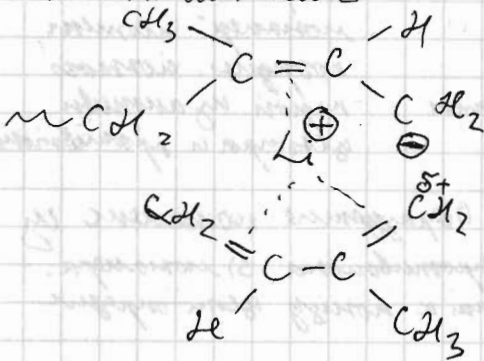 CH₃ H
C = C
~ CH₂ CH₂
Li ⊕ ⊖
δ+
CH₂ CH₂
C – C
H CH₃